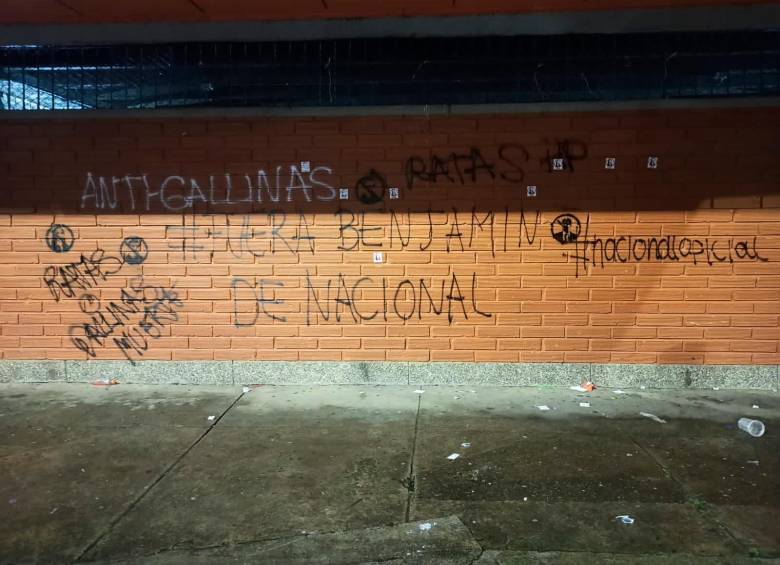 RATAS HP
ANTI-GALLINAS
#FUERA BENJAMIN
#nacionaloficial
DE NACIONAL
RATAS
GALLINAS